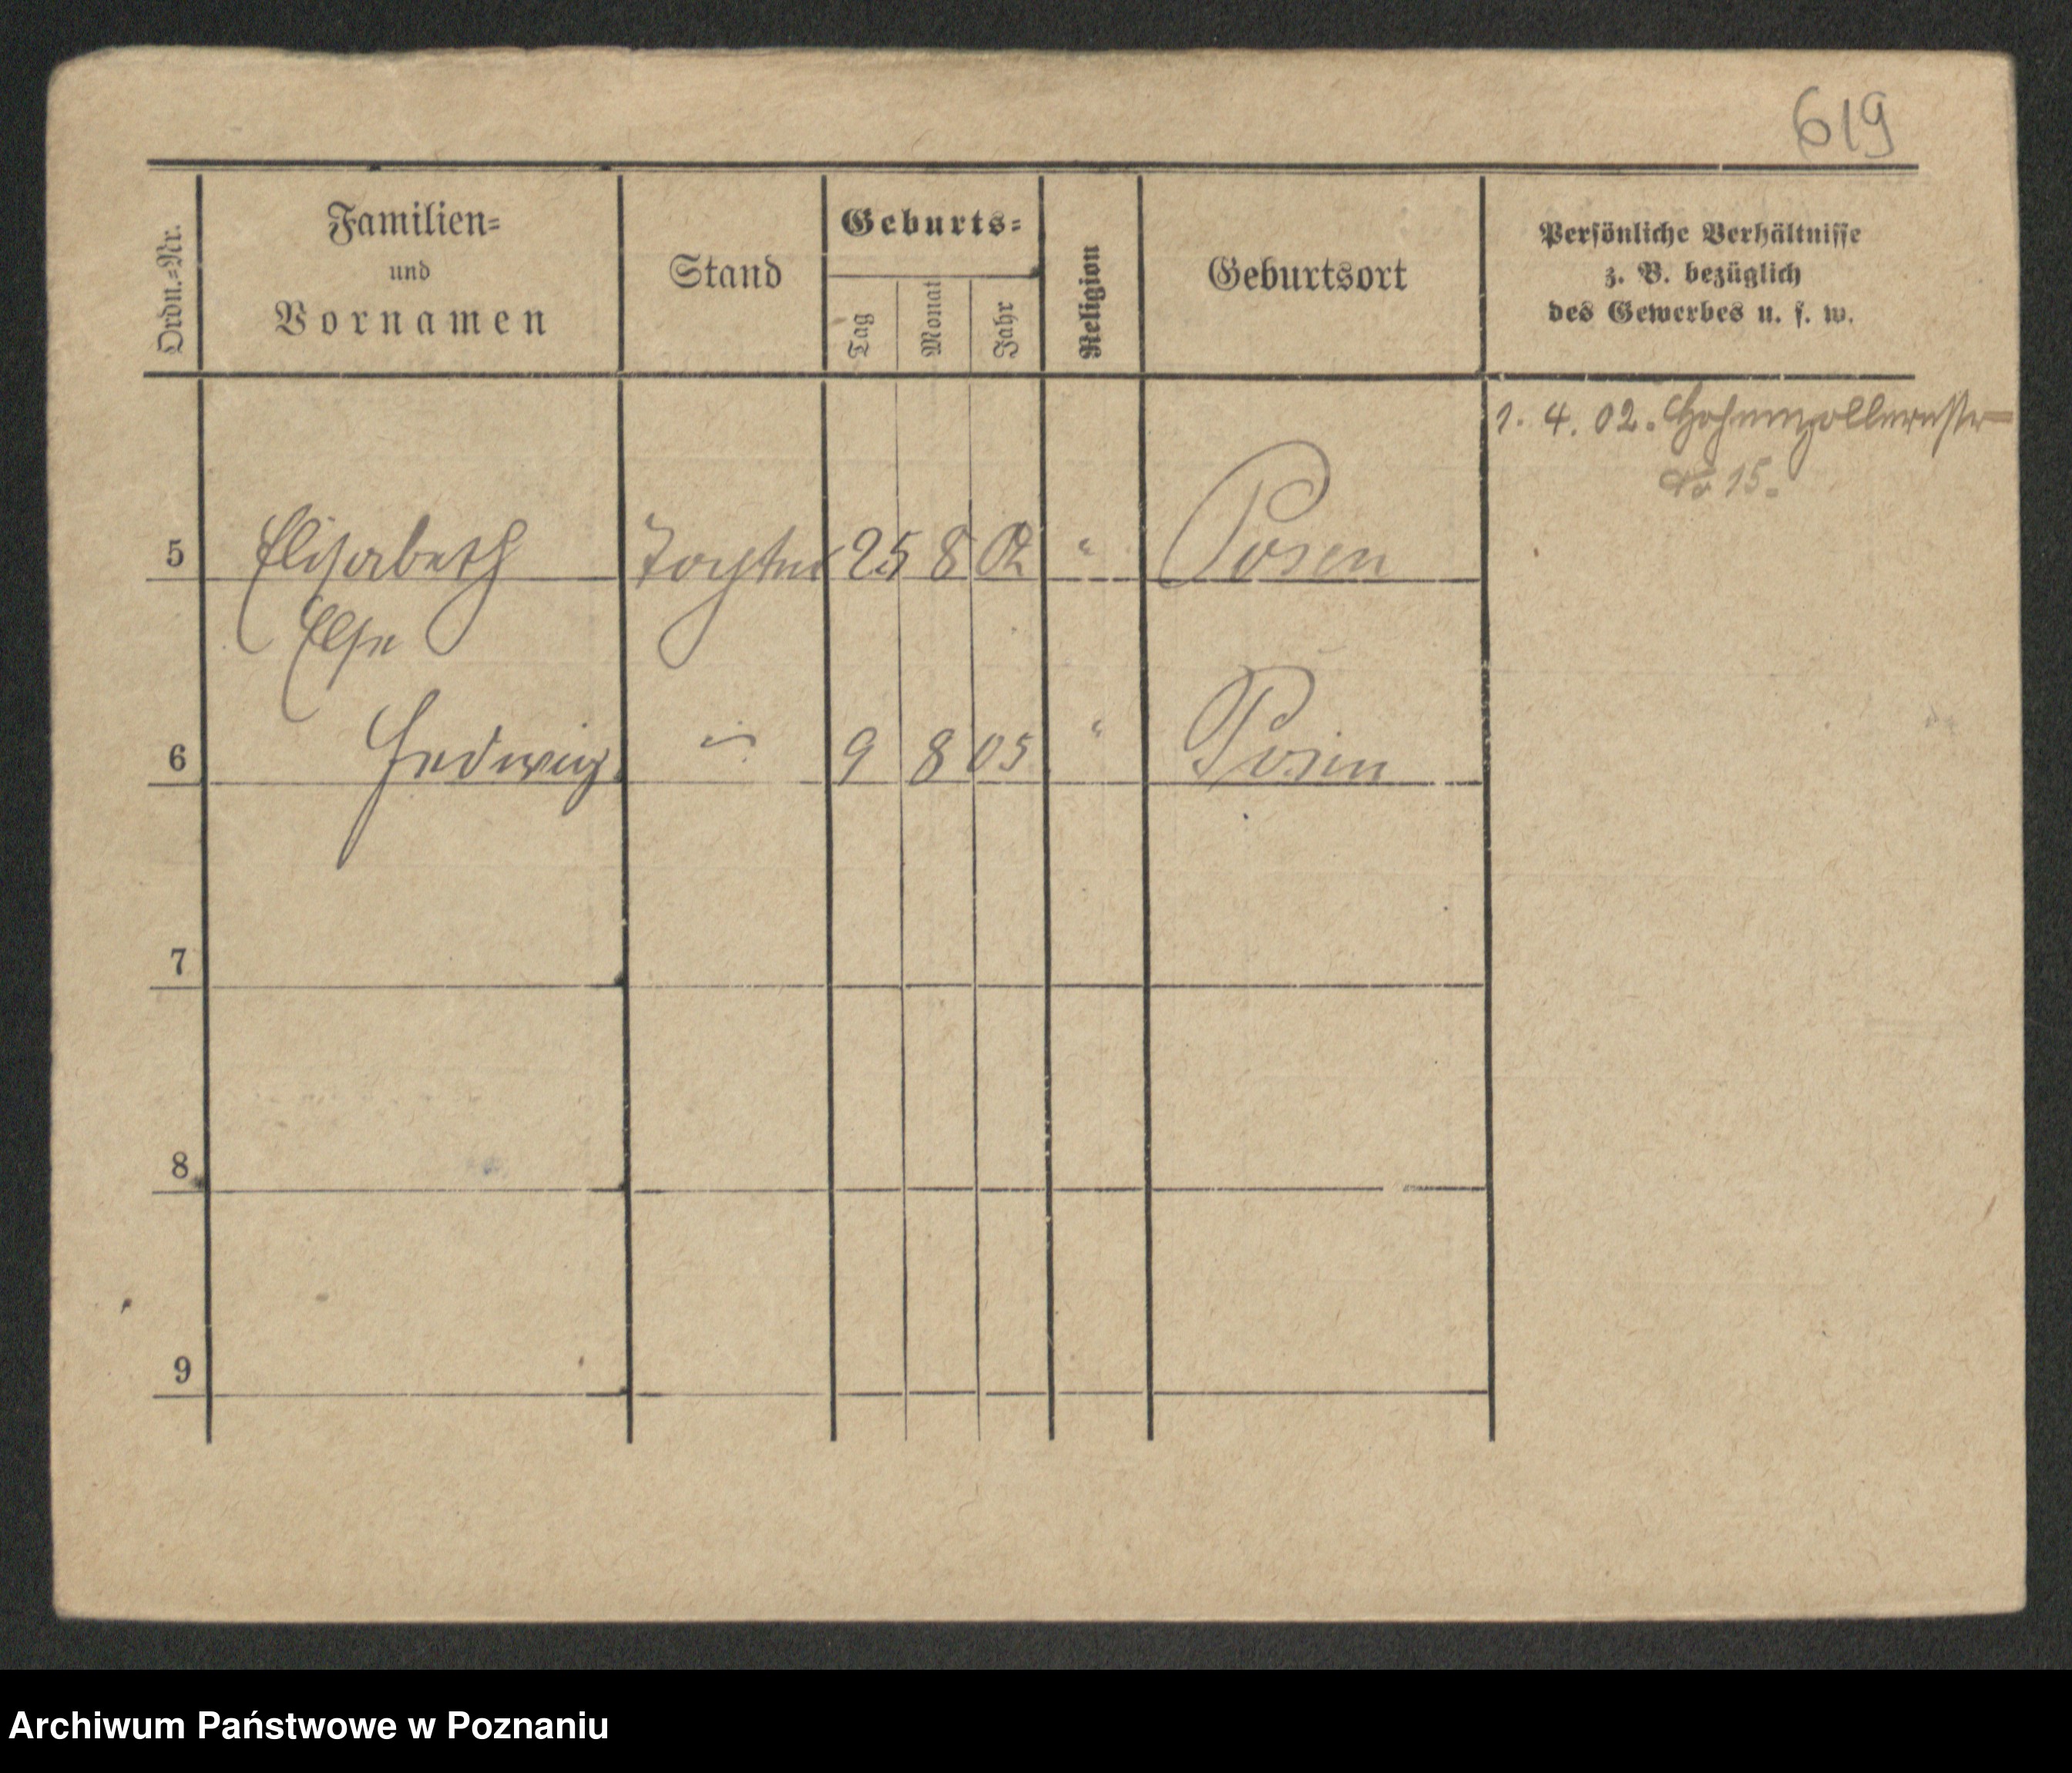 619
Ordn.=Nr.
Familien=
und
Vornamen
Stand
Geburts=
Tag
Monat
Jahr
Religion
Geburtsort
Persönliche Verhältnisse
z. B. bezüglich
des Gewerbes u. s. w.
1. 4. 02. Hohenzollernstr
No 15.
5 Elisabeth Tochter 25 8 02 " Posen
Else
6 Hedwig. " 9 8 05 " Posen
7
8
9
Archiwum Państwowe w Poznaniu